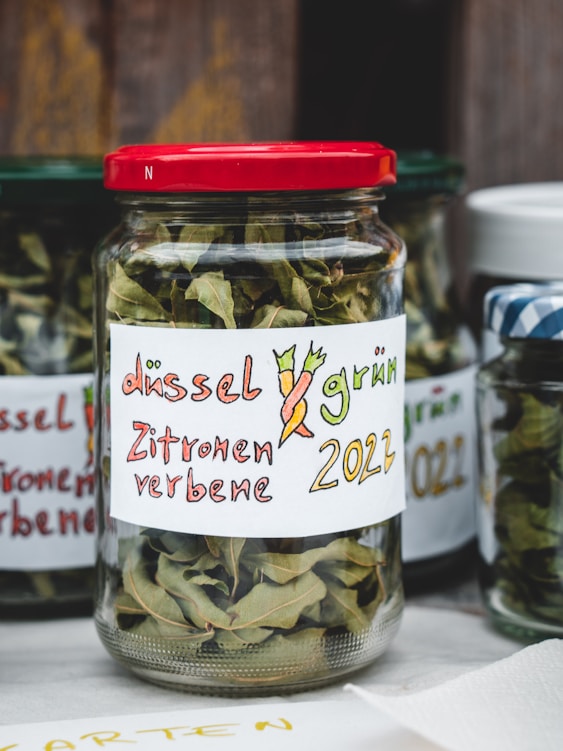 N
düssel grün
Zitronen 2022
verbene
ssel
tronen
rbene
rün
2022
KARTEN